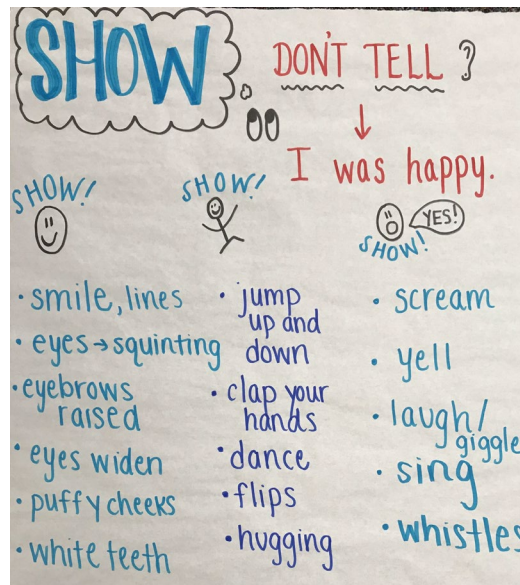 SHOW
DON'T TELL ?
I was happy.
SHOW!
• smile, lines
• eyes → squinting
• eyebrows
raised
• eyes widen
• puffy cheeks
• white teeth
SHOW!
• jump
up and
down
• clap your
hands
• dance
• flips
• hugging
YES!
SHOW!
• scream
• yell
• laugh/
giggle
• sing
• whistles